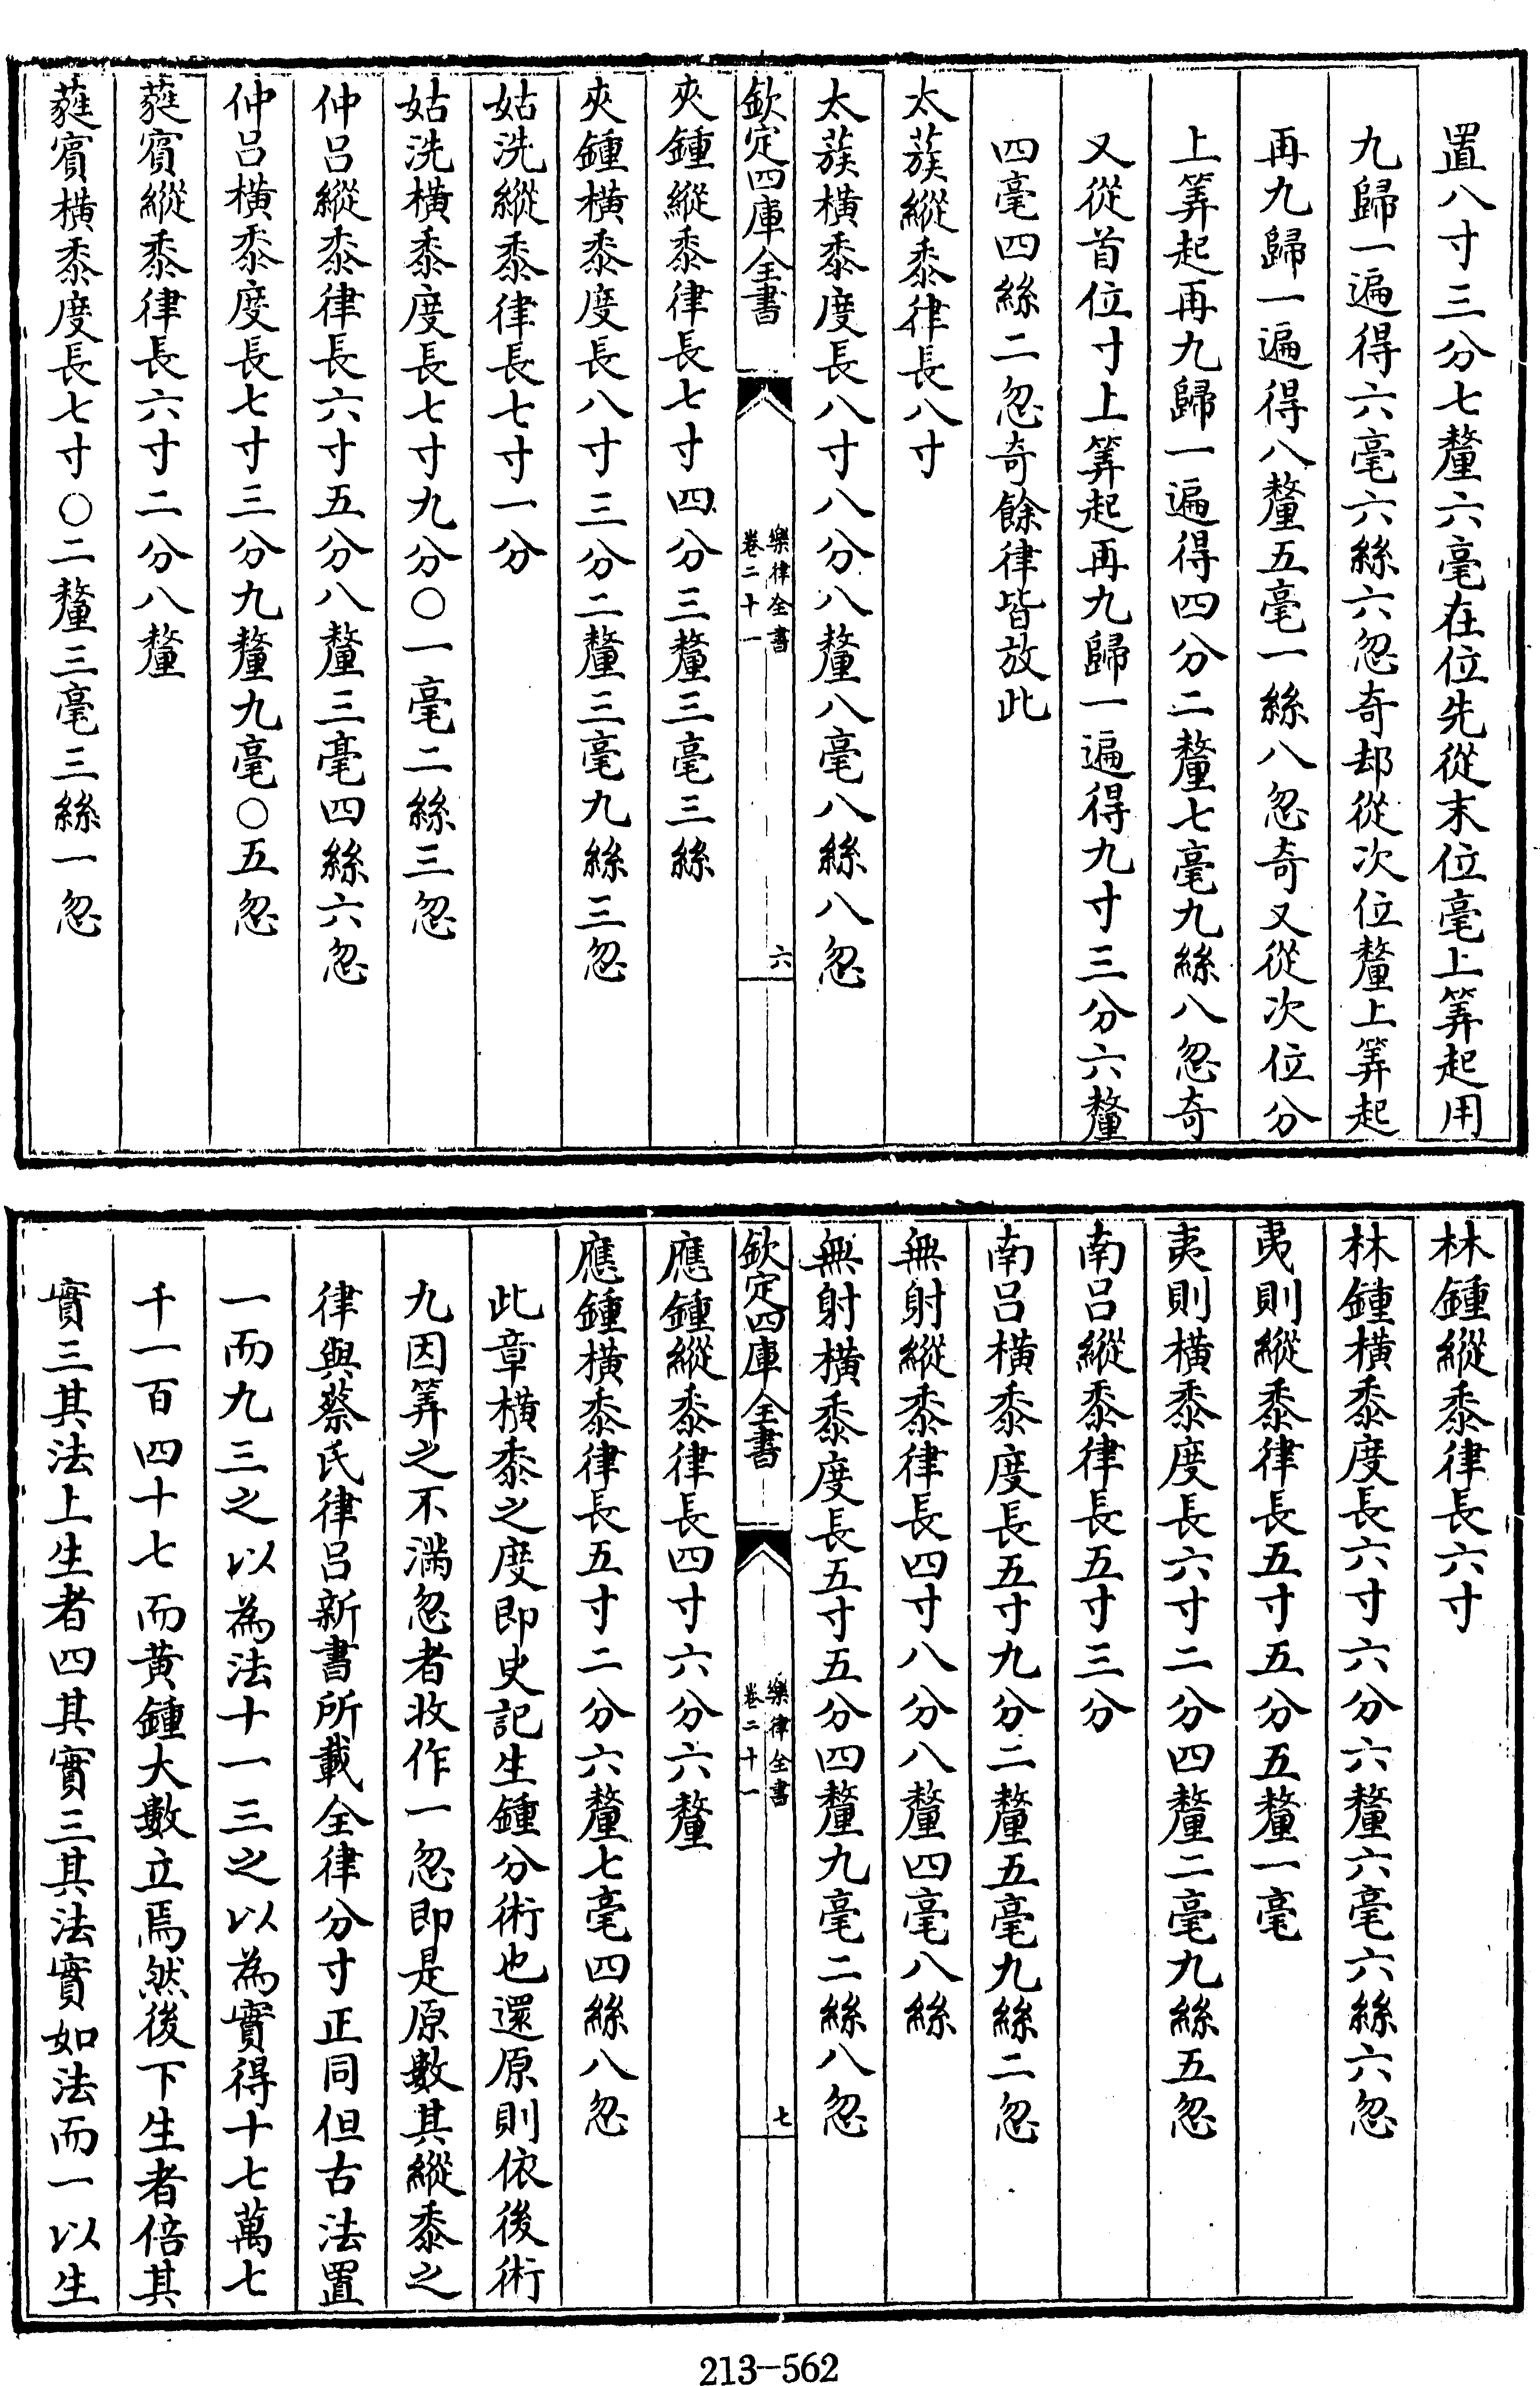 置八寸三分七釐六毫在位先從末位毫上筭起用
九歸一遍得六毫六絲六忽奇却從次位釐上筭起
再九歸一遍得八釐五毫一絲八忽奇又從次位分
上筭起再九歸一遍得四分二釐七毫九絲八忽奇
又從首位寸上筭起再九歸一遍得九寸三分六釐
四毫四絲二忽奇餘律皆放此
太蔟縱黍律長八寸
太蔟橫黍度長八寸八分八釐八毫八絲八忽
欽定四庫全書
樂律全書
卷二十一
六
夾鍾縱黍律長七寸四分三釐三毫三絲
夾鍾橫黍度長八寸三分二釐三毫九絲三忽
姑洗縱黍律長七寸一分
姑洗橫黍度長七寸九分〇一毫二絲三忽
仲呂縱黍律長六寸五分八釐三毫四絲六忽
仲呂橫黍度長七寸三分九釐九毫〇五忽
蕤賓縱黍律長六寸二分八釐
蕤賓橫黍度長七寸〇二釐三毫三絲一忽
林鍾縱黍律長六寸
林鍾橫黍度長六寸六分六釐六毫六絲六忽
夷則縱黍律長五寸五分五釐一毫
夷則橫黍度長六寸二分四釐二毫九絲五忽
南呂縱黍律長五寸三分
南呂橫黍度長五寸九分二釐五毫九絲二忽
無射縱黍律長四寸八分八釐四毫八絲
無射橫黍度長五寸五分四釐九毫二絲八忽
欽定四庫全書
樂律全書
卷二十一
七
應鍾縱黍律長四寸六分六釐
應鍾橫黍律長五寸二分六釐七毫四絲八忽
此章橫黍之度即史記生鍾分術也還原則依後術
九因筭之不滿忽者收作一忽即是原數其縱黍之
律與蔡氏律呂新書所載全律分寸正同但古法置
一而九三之以為法十一三之以為實得十七萬七
千一百四十七而黃鍾大數立焉然後下生者倍其
實三其法上生者四其實三其法實如法而一以生
213-562